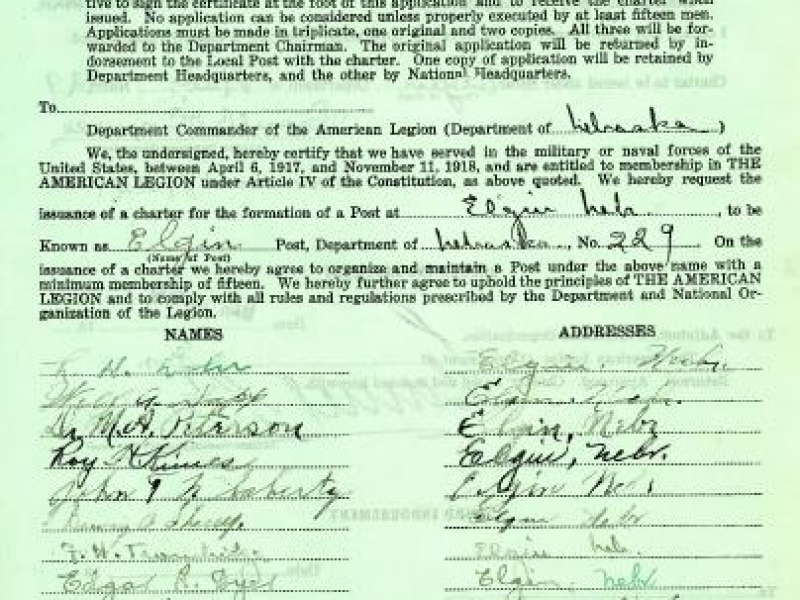 tive to sign the certificate at the foot of this application and to receive the charter when
issued. No application can be considered unless properly executed by at least fifteen men.
Applications must be made in triplicate, one original and two copies. All three will be for-
warded to the Department Chairman. The original application will be returned by in-
dorsement to the Local Post with the charter. One copy of application will be retained by
Department Headquarters, and the other by National Headquarters.
To
Department Commander of the American Legion (Department of Nebraska)
We, the undersigned, hereby certify that we have served in the military or naval forces of the
United States, between April 6, 1917, and November 11, 1918, and are entitled to membership in THE
AMERICAN LEGION under Article IV of the Constitution, as above quoted. We hereby request the
issuance of a charter for the formation of a Post at Elgin Nebr., to be
Known as Elgin Post, Department of Nebraska, No. 229 On the
(Name of Post)
issuance of a charter we hereby agree to organize and maintain a Post under the above name with a
minimum membership of fifteen. We hereby further agree to uphold the principles of THE AMERICAN
LEGION and to comply with all rules and regulations prescribed by the Department and National Or-
ganization of the Legion.
NAMES ADDRESSES
H. Elgin, Nebr.
Elgin
Dr M.A. Peterson Elgin, Nebr
Roy Elgin, Nebr.
John Elgin
Elgin Nebr
F. H. Elgin Neb.
Edgar R. Dyer Elgin, Nebr